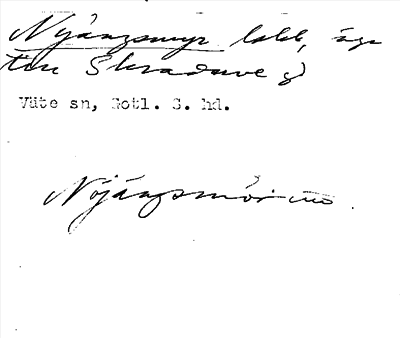 Nyängsmyr lokl, äga
till Skradarve gd
Väte sn, Gotl. S. hd.
Nöjängsmör